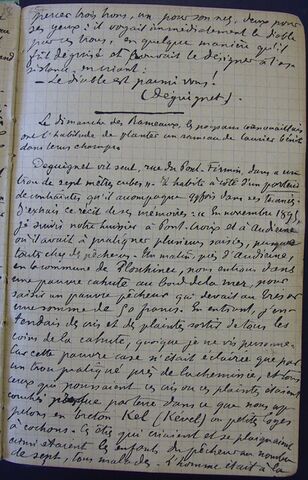 percer trois trous, un pour son nez, deux pour
ses yeux : il voyait immédiatement le diable
par ce trous, en quelque manière qu'il
fût déguisé et pouvait le désigner à l'as
sistance en criant :
— Le diable est parmi vous !
(Déguignet).
Le dimanche des Rameaux, les paysans cornouaillais
ont l'habitude de planter un rameau de laurier bénit
dans leurs champs.
Déguignet vit seul, rue du Pont-Firmin, dans "un
trou de sept mètres cubes". Il habite à côté d'un porteur
de contraintes qu'il accompagne dans ses tournées.
J'extrais ce récit de ses mémoires : "En novembre 1898,
je suivis notre huissier à Pont-Croix et à Audierne
où il avait à pratiquer plusieurs saisies, presque
toutes chez des pêcheurs. Un matin, près d'Audierne,
en la commune de Plouhinec, nous entrions dans
une pauvre cahute au bord de la mer, pour
saisir un pauvre pêcheur qui devait au Trésor
une somme de 50 francs. En entrant, j'en-
tendais des cris et des plaintes sortir de tous les
coins de la cahute, quoique je ne vis personne.
Car cette pauvre case n'était éclairée que par
un trou pratiqué près de la cheminée, et tous
ceux qui poussaient ces cris ou ces plaintes étaient
couchés par terre dans ce que nous ap-
pelons en breton Kel (Kével) ou petites loges
à cochons. Ces êtres qui criaient et se plaignaient
ainsi étaient les enfants du pêcheur au nombre
de sept, tous malades. L'homme était à la